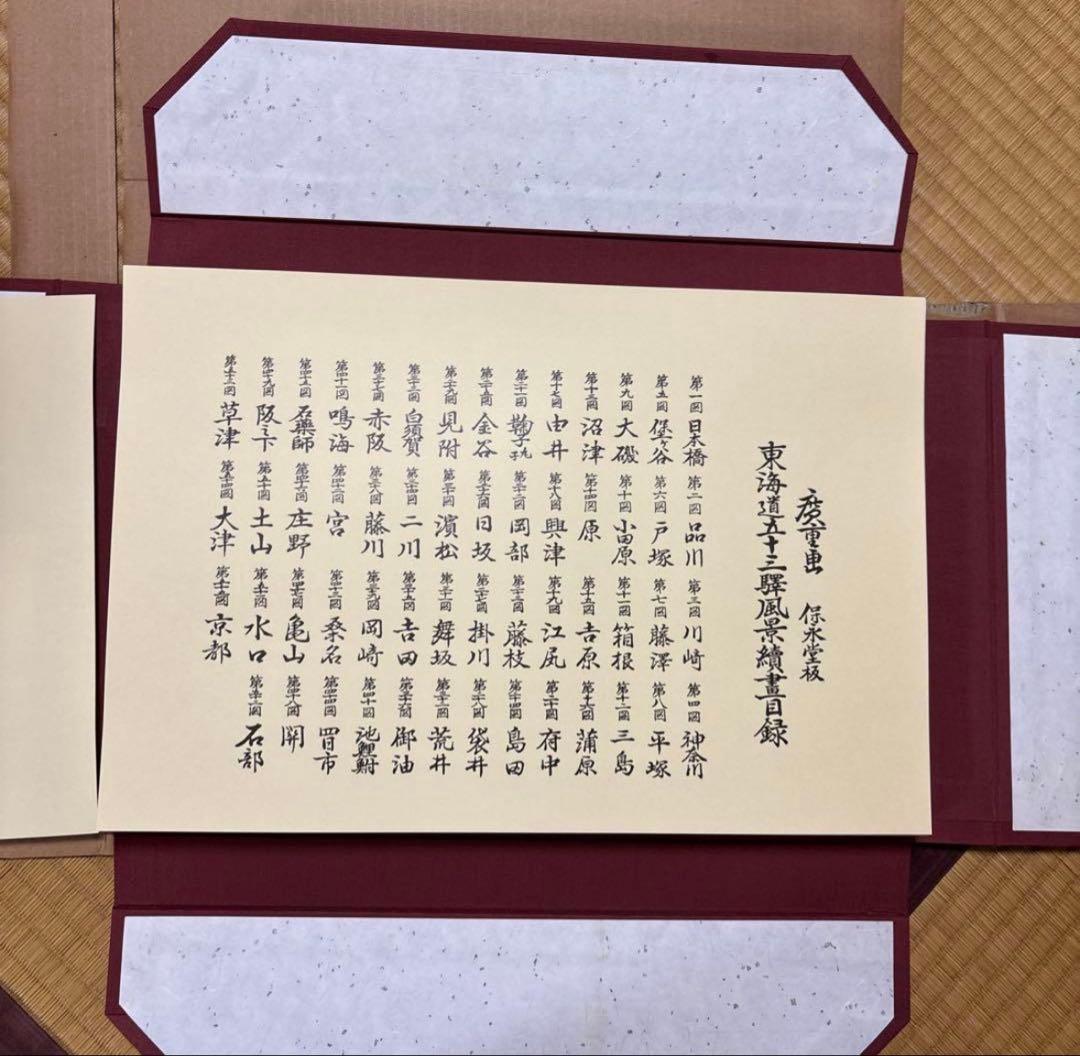 広重画 保永堂板
東海道五十三驛風景續畫目録
第一図 日本橋 第二図 品川 第三図 川崎 第四図 神奈川
第五図 保土ヶ谷 第六図 戸塚 第七図 藤澤 第八図 平塚
第九図 大磯 第十図 小田原 第十一図 箱根 第十二図 三島
第十三図 沼津 第十四図 原 第十五図 吉原 第十六図 蒲原
第十七図 由井 第十八図 興津 第十九図 江尻 第二十図 府中
第二十一図 鞠子 第二十二図 岡部 第二十三図 藤枝 第二十四図 島田
第二十五図 金谷 第二十六図 日坂 第二十七図 掛川 第二十八図 袋井
第二十九図 見附 第三十図 濱松 第三十一図 舞坂 第三十二図 荒井
第三十三図 白須賀 第三十四図 二川 第三十五図 吉田 第三十六図 御油
第三十七図 赤阪 第三十八図 藤川 第三十九図 岡崎 第四十図 池鯉鮒
第四十一図 鳴海 第四十二図 宮 第四十三図 桑名 第四十四図 四日市
第四十五図 石藥師 第四十六図 庄野 第四十七図 亀山 第四十八図 関
第四十九図 阪ノ下 第五十図 土山 第五十一図 水口 第五十二図 石部
第五十三図 草津 第五十四図 大津 第五十五図 京都